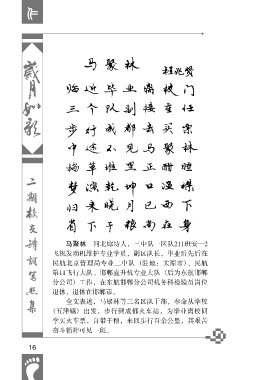 作
岁月如歌
二期校友诗词笔照集
马聚林
程兆贤
临近毕业离校门
三个队到接重任
步行成都去买票
中途不见马聚林
归来晓月已西下
肩下干粮尚在身
马聚林　河北廊坊人，三中队一区队211班安—2
飞机发动机维护专业学员，副区队长。毕业后先后在
民航北京管理局专业二中队（驻地：太原市）、民航
第11飞行大队、邯郸直升机专业大队（后为东航邯郸
分公司）工作，在东航邯郸分公司机务科检验员岗位
退休。退休在邯郸市。
全文表述，马聚林等三名区队干部，奉命从学校
（五津镇）出发，步行到成都火车站，为毕业离校同
学买火车票，自带干粮，来回步行百余公里，其艰苦
奋斗精神可见一斑。
16